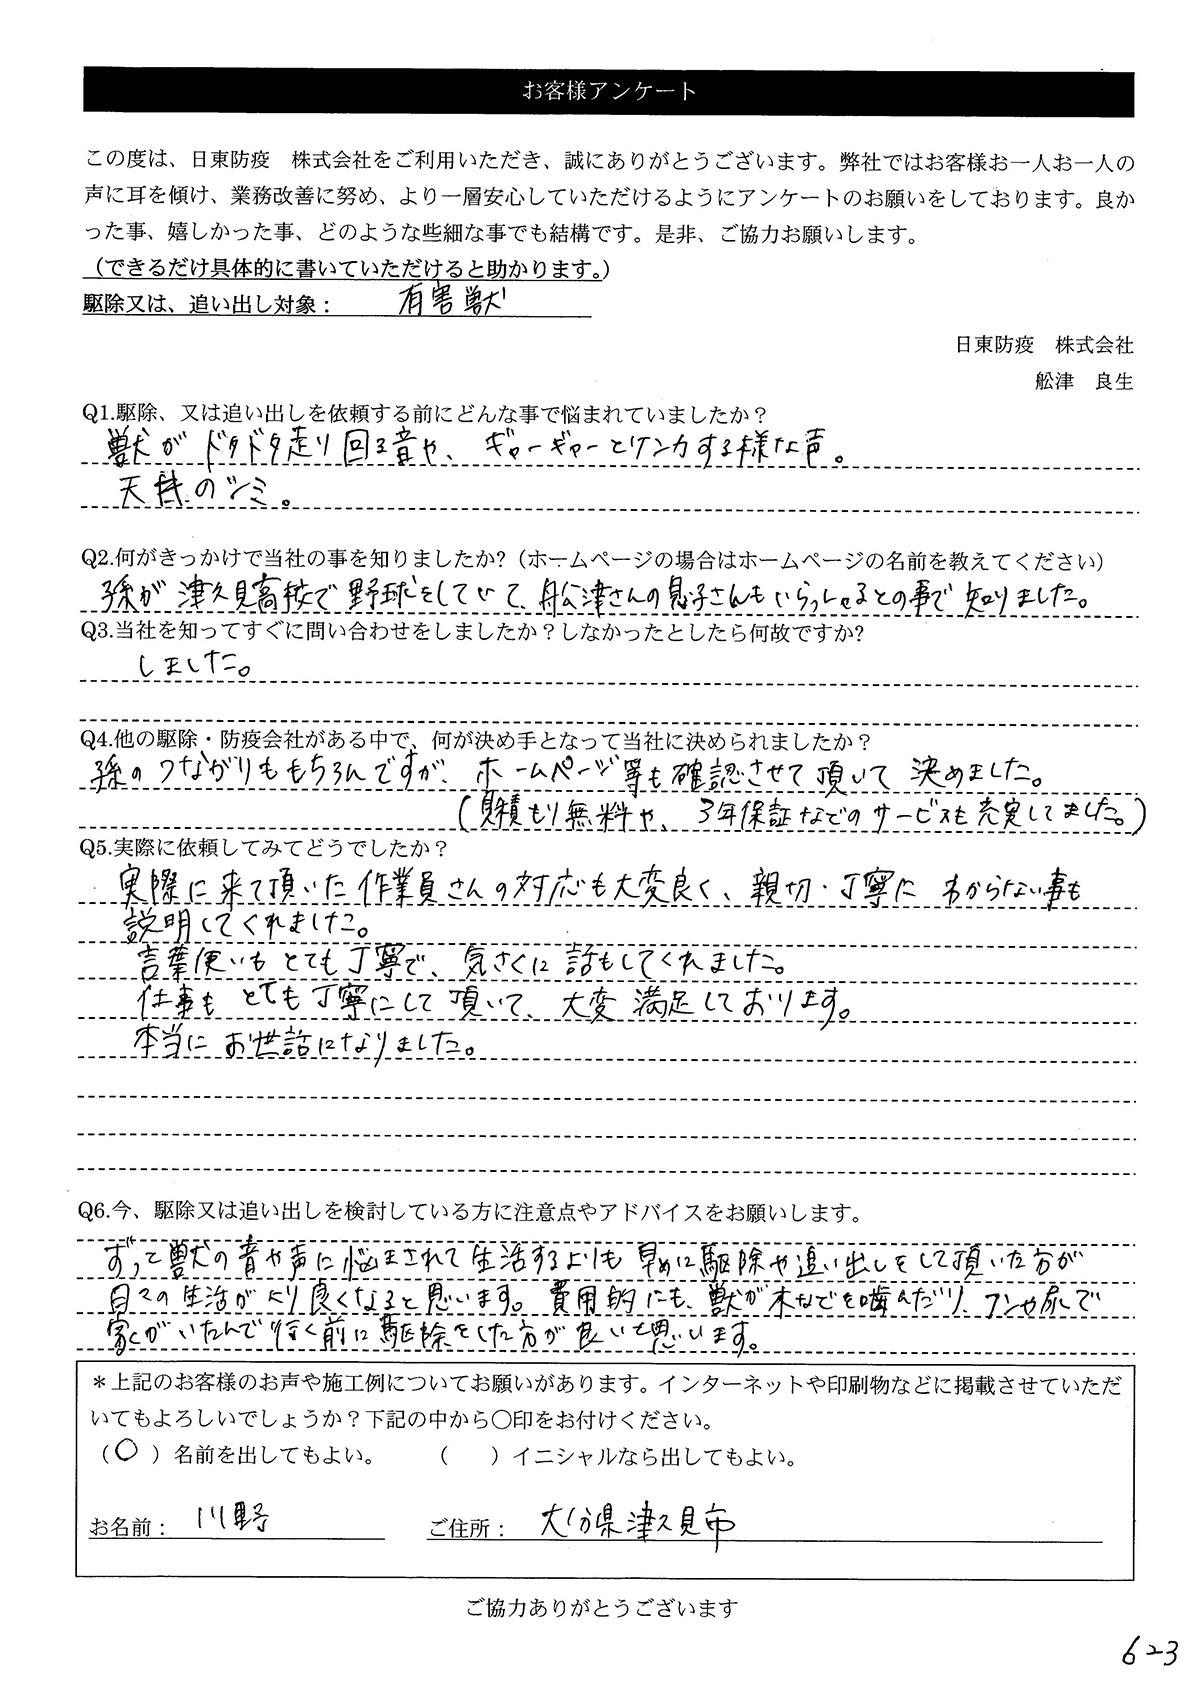 お客様アンケート
この度は、日東防疫　株式会社をご利用いただき、誠にありがとうございます。弊社ではお客様お一人お一人の
声に耳を傾け、業務改善に努め、より一層安心していただけるようにアンケートのお願いをしております。良か
った事、嬉しかった事、どのような些細な事でも結構です。是非、ご協力お願いします。
（できるだけ具体的に書いていただけると助かります。）
駆除又は、追い出し対象： 有害獣
日東防疫　株式会社
舩津　良生
Q1.駆除、又は追い出しを依頼する前にどんな事で悩まれていましたか？
獣がドタドタ走り回る音や、ギャーギャーとケンカする様な声。
天井のシミ。
Q2.何がきっかけで当社の事を知りましたか?（ホームページの場合はホームページの名前を教えてください）
孫が津久見高校で野球をしていて、舩津さんの息子さんもいらっしゃるとの事で知りました。
Q3.当社を知ってすぐに問い合わせをしましたか？しなかったとしたら何故ですか?
しました。
Q4.他の駆除・防疫会社がある中で、何が決め手となって当社に決められましたか？
孫のつながりももちろんですが、ホームページ等も確認させて頂いて決めました。
（見積もり無料や、3年保証などのサービスも充実してました。）
Q5.実際に依頼してみてどうでしたか？
実際に来て頂いた作業員さんの対応も大変良く、親切・丁寧にわからない事も
説明してくれました。
言葉使いもとても丁寧で、気さくに話もしてくれました。
仕事もとても丁寧にして頂いて、大変満足しております。
本当にお世話になりました。
Q6.今、駆除又は追い出しを検討している方に注意点やアドバイスをお願いします。
ずっと獣の音や声に悩まされて生活するよりも早めに駆除や追い出しをして頂いた方が
日々の生活がより良くなると思います。費用的にも、獣が木などを噛んだり、フンや尿で
家がいたんで行く前に駆除をした方が良いと思います。
＊上記のお客様のお声や施工例についてお願いがあります。インターネットや印刷物などに掲載させていただ
いてもよろしいでしょうか？下記の中から〇印をお付けください。
（〇）名前を出してもよい。　（　）イニシャルなら出してもよい。
お名前： 川野　ご住所： 大分県津久見市
ご協力ありがとうございます
6-23